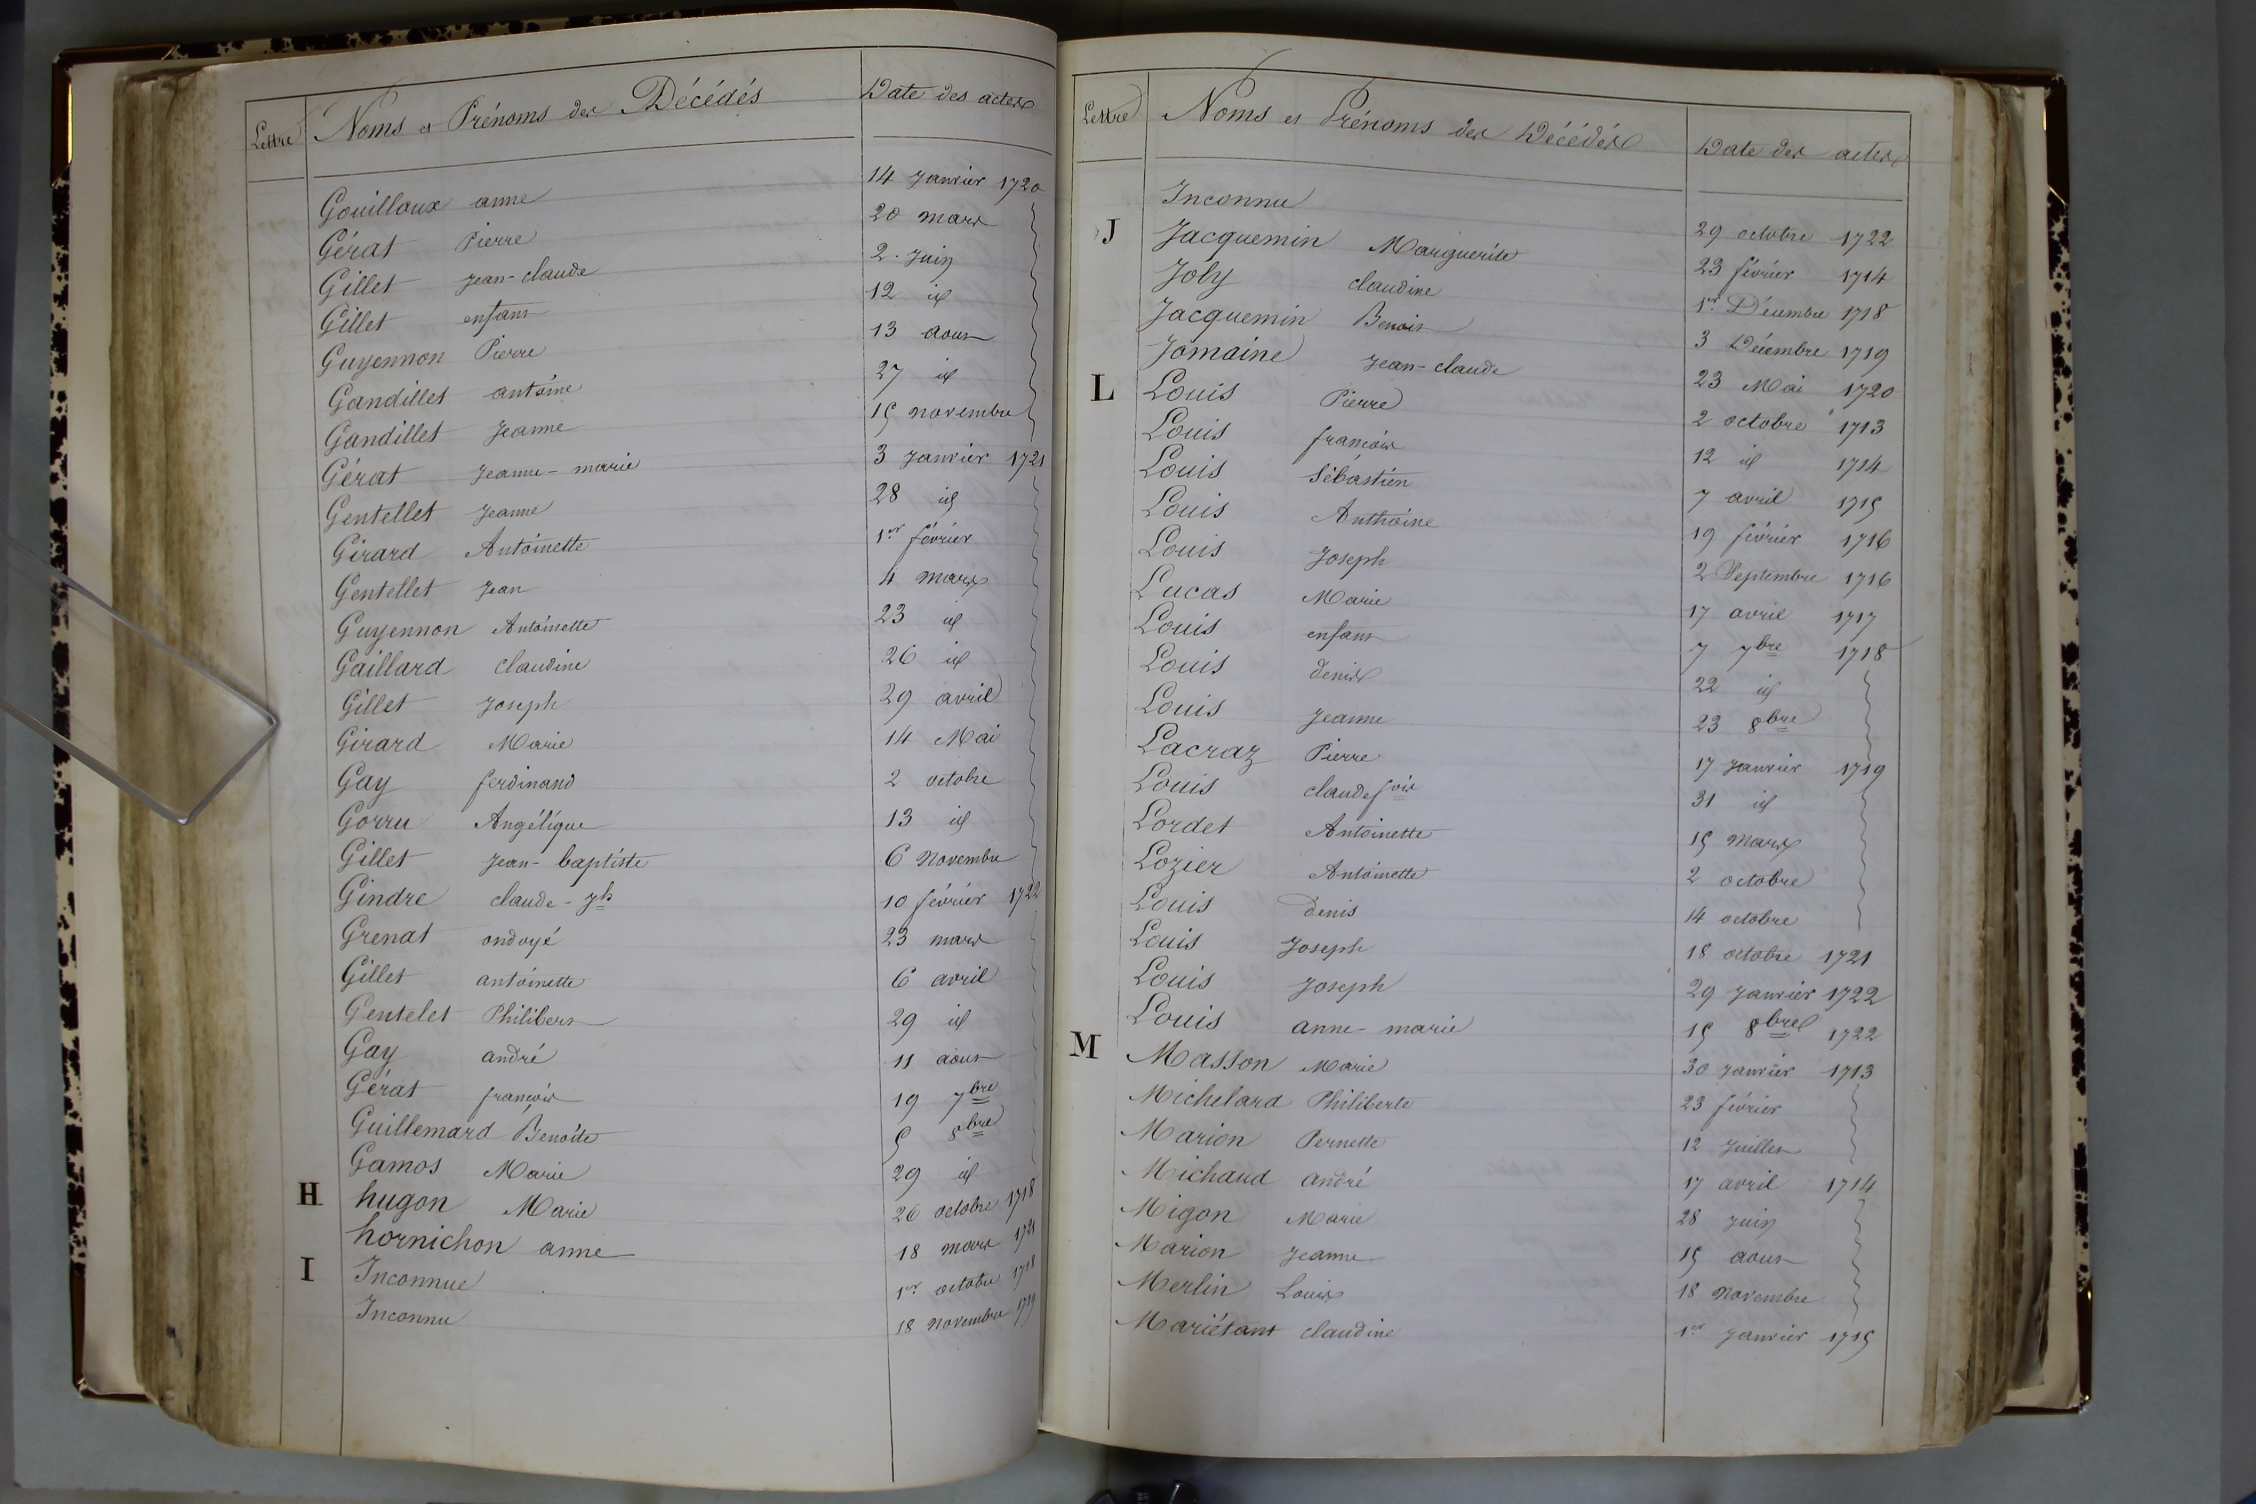 Lettre Noms et Prénoms des Décédés Date des actes
Gouilloux anne 14 Janvier 1720
Gérat Pierre 20 mars
Gillet Jean-claude 2. Juin
Gillet enfant 12 id
Guyennon Pierre 13 aout
Gandillet antoine 27 id
Gandillet Jeanne 15 novembre
Gérat Jeanne-marie 3 Janvier 1721
Gentellet Jeanne 28 id
Girard Antoinette 1er février
Gentellet Jean 4 mars
Guyennon Antoinette 23 id
Gaillard claudine 26 id
Gillet Joseph 29 avril
Girard Marie 14 Mai
Gay ferdinand 2 octobre
Gorru Angélique 13 id
Gillet Jean-baptiste 6 Novembre
Gindre claude-Jh 10 février 1722
Grenat ondoyé 23 mars
Gillet antoinette 6 avril
Gentelet Philibert 29 id
Gay andré 11 aout
Gérat francois 19 7bre
Guillemard Benoite 5 8bre
Gamos Marie 29 id
H hugon Marie 26 octobre 1718
hornichon anne 18 mars 1721
I Inconnue 1er octobre 1718
Inconnu 18 novembre 1719
Lettre Noms et Prénoms des Décédés Date des actes
Inconnu 29 octobre 1722
J Jacquemin Marguerite 23 février 1714
Joly claudine 1er Décembre 1718
Jacquemin Benoit 3 Décembre 1719
Jomaine Jean-claude 23 Mai 1720
L Louis Pierre 2 octobre 1713
Louis francois 12 id 1714
Louis Sébastien 7 avril 1715
Louis Anthoine 19 février 1716
Louis Joseph 2 Septembre 1716
Lucas Marie 17 avril 1717
Louis enfant 7 7bre 1718
Louis denis 22 id
Louis Jeanne 23 8bre
Lacraz Pierre 17 Janvier 1719
Louis claude fois 31 id
Lordet Antoinette 15 mars
Lozier Antoinette 2 octobre
Louis denis 14 octobre
Louis Joseph 18 octobre 1721
Louis Joseph 29 Janvier 1722
Louis anne-marie 15 8bre 1722
M Masson Marie 30 Janvier 1713
Michelard Philiberte 23 février
Marion Pernette 12 Juillet
Michaud andré 17 avril 1714
Migon Marie 28 Juin
Marion Jeanne 15 aout
Merlin Louis 18 Novembre
Mariétant claudine 1er Janvier 1715